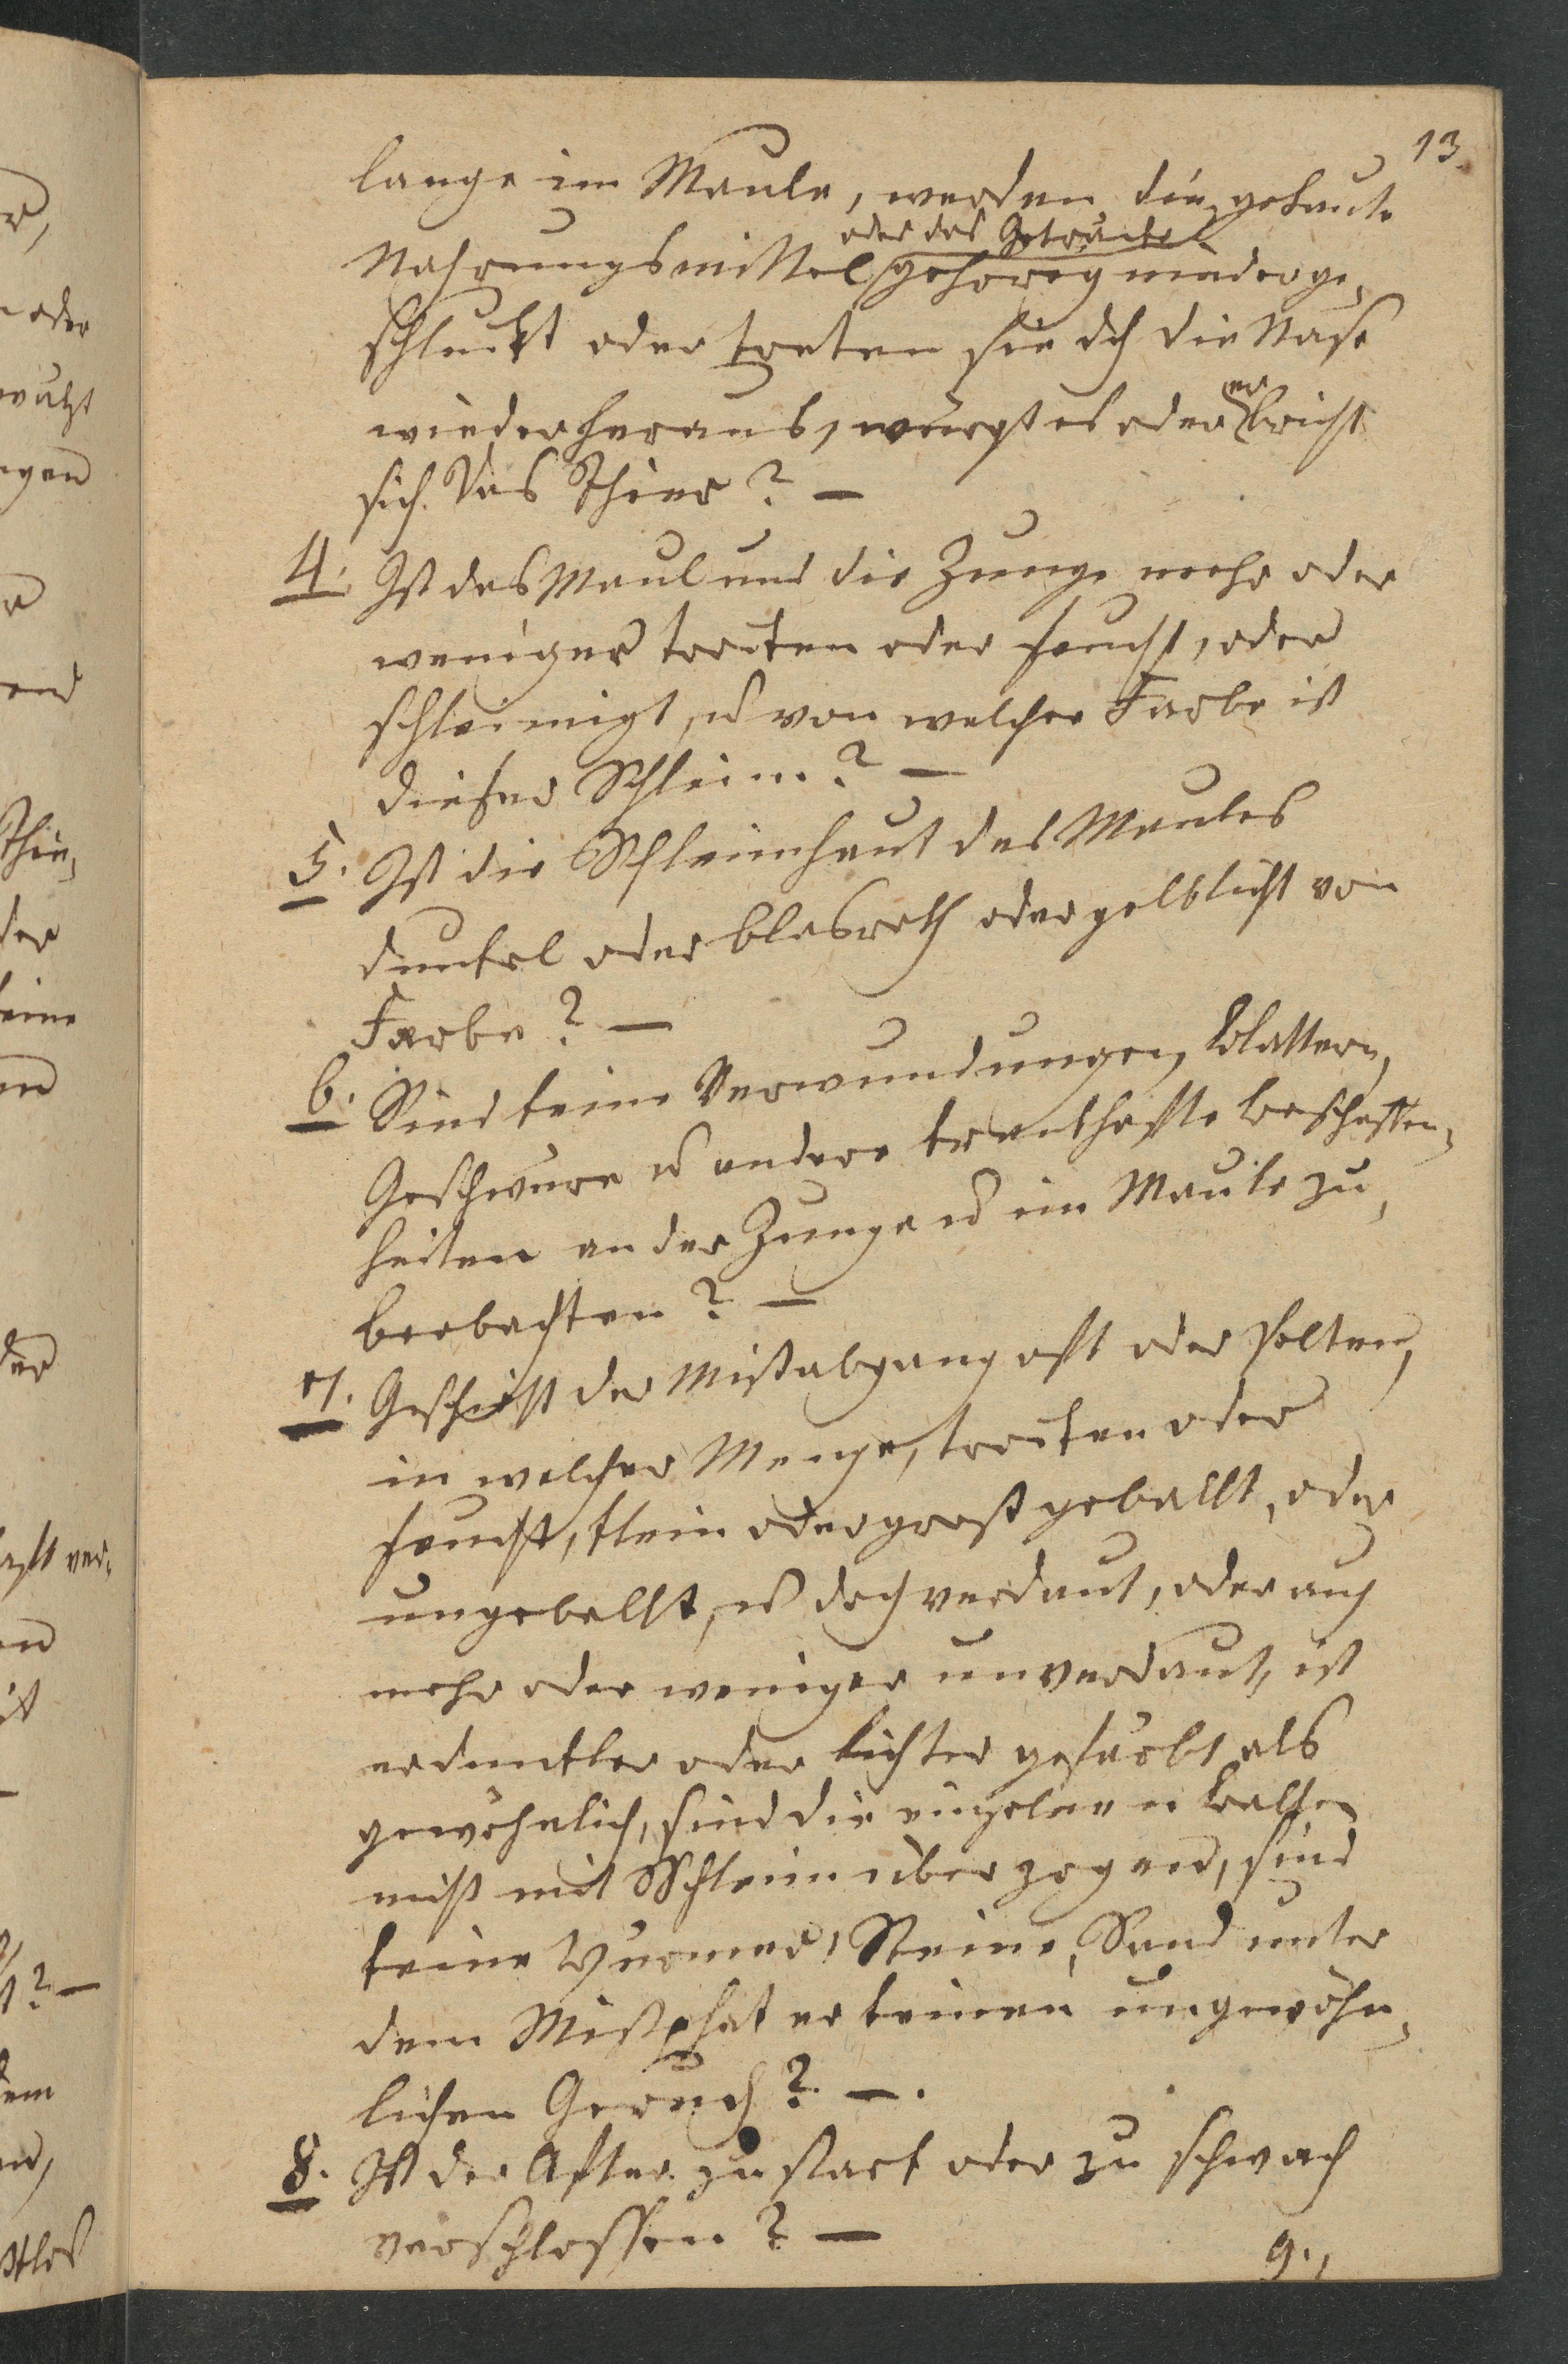 13.
lange im Maule, werden die gekaute
oder das Getränke
Nahrungsmittel gehörig niederge-
schluckt oder treten sie dch die Nase
wieder heraus, würgt es oder erbricht
sich das Thier? —
4. Ist das Maul und die Zunge mehr oder
weniger trocken oder feucht, oder
schleimigt, u von welcher Farbe ist
dieser Schleim? —
5. Ist die Schleimhaut des Maules
dunkel oder blasroth oder gelblicht von
Farbe? —
6. Sind keine Verwundungen, Blattern,
Geschwüre u andere krankhafte Beschaffen-
heiten an der Zunge u im Maule zu
beobachten? —
7. Geschieht der Mistabgang oft oder selten,
in welcher Menge, trocken oder
feucht, klein oder groß geballt, oder
ungeballt, u doch verdaut, oder auch
mehr oder weniger unverdaut, ist
er dunkler oder lichter gefärbt als
gewöhnlich, sind die einzelnen Ballen
mist mit Schleim überzogen, sind
keine Würmer, Steine, Sand unter
dem Mist, hat er keinen ungewöhn-
lichen Geruch? —.
8. Ist der After zu stark oder zu schwach
verschlossen? —
9.,